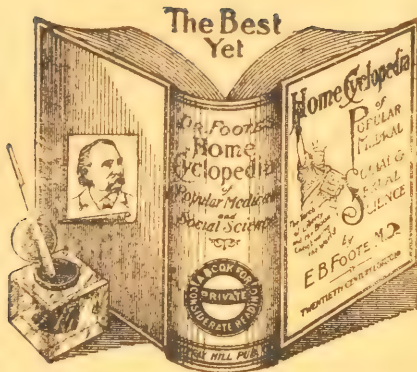 The Best
Yet
DR. FOOTE'S
Home
Cyclopedia
of
Popular Medical
and
Social Science
A BOOK FOR
PRIVATE
CONSIDERATE READING
HILL PUB
Home Cyclopedia
OF
POPULAR
MEDICAL
SOCIAL &
SEXUAL
SCIENCE
by
E.B. FOOTE, M.D.
TWENTIETH CENTURY